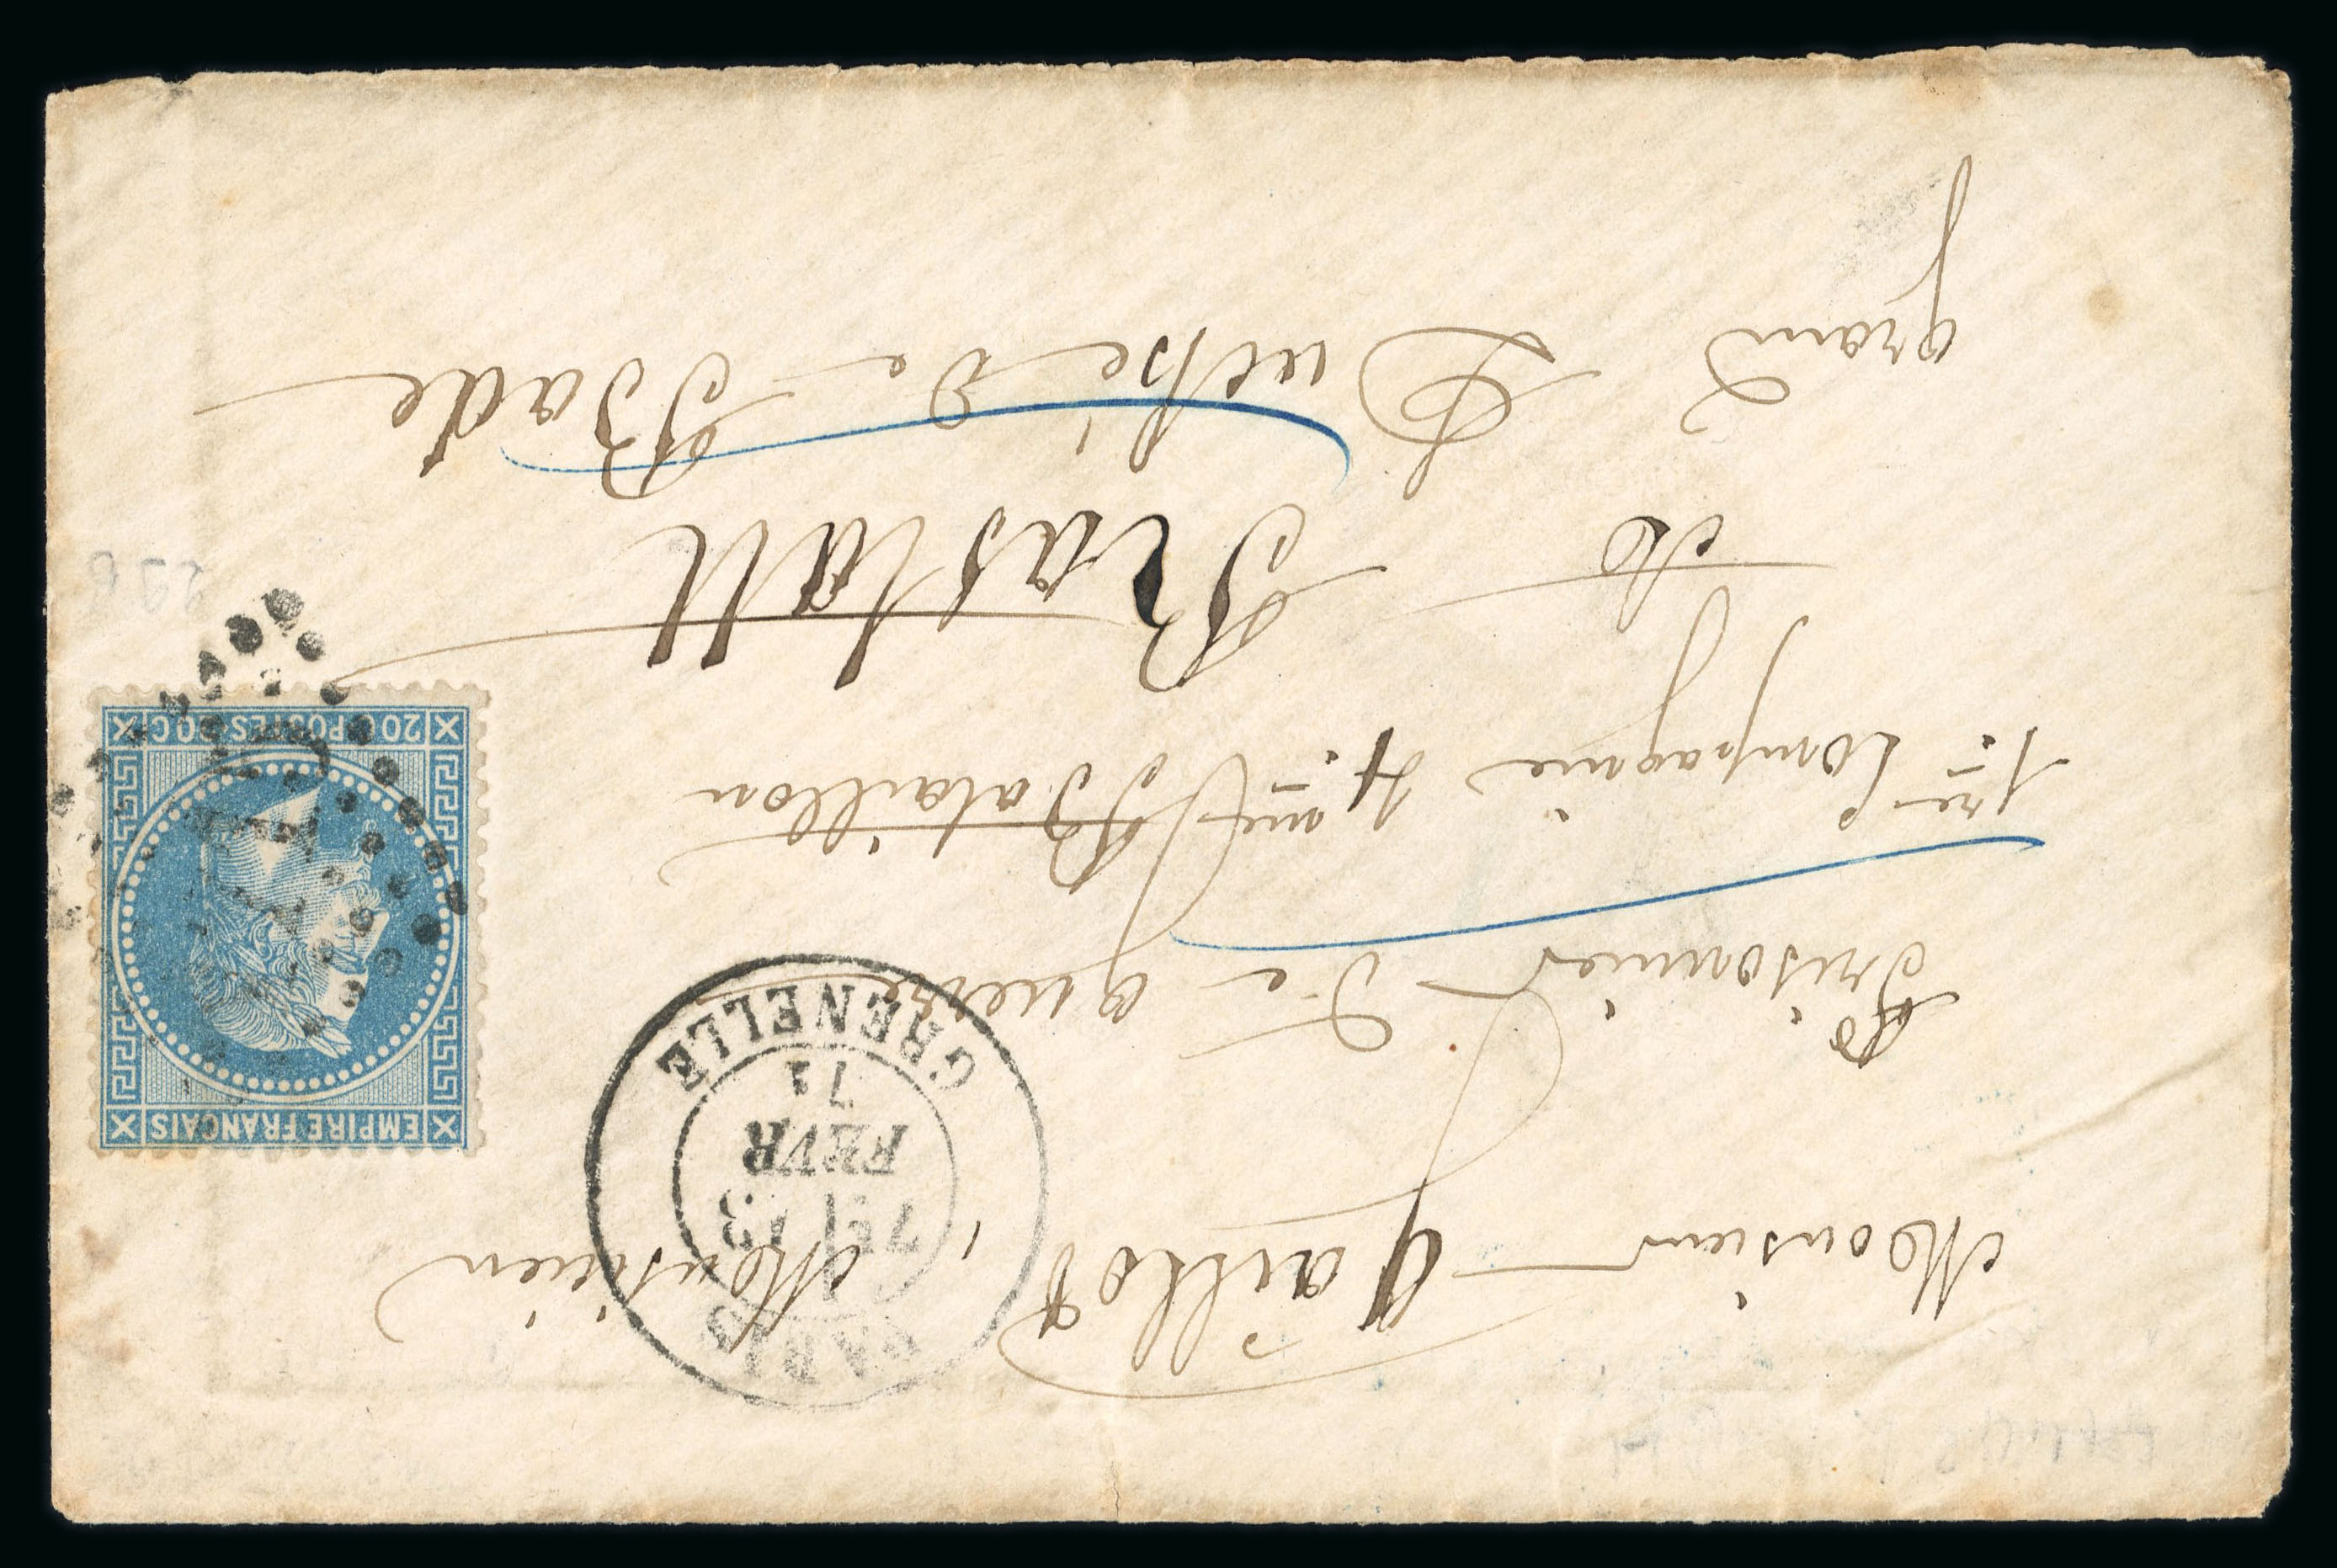 Monsieur Gaillot, Monsieur
Prisonnier de guerre
1re Compagnie 4me Bataillon
A Rastatt
grand Duché de Bade
PARIS
7E 13
FEVR
71
GRENELLE
EMPIRE FRANCAIS
20 C POSTES 20 C